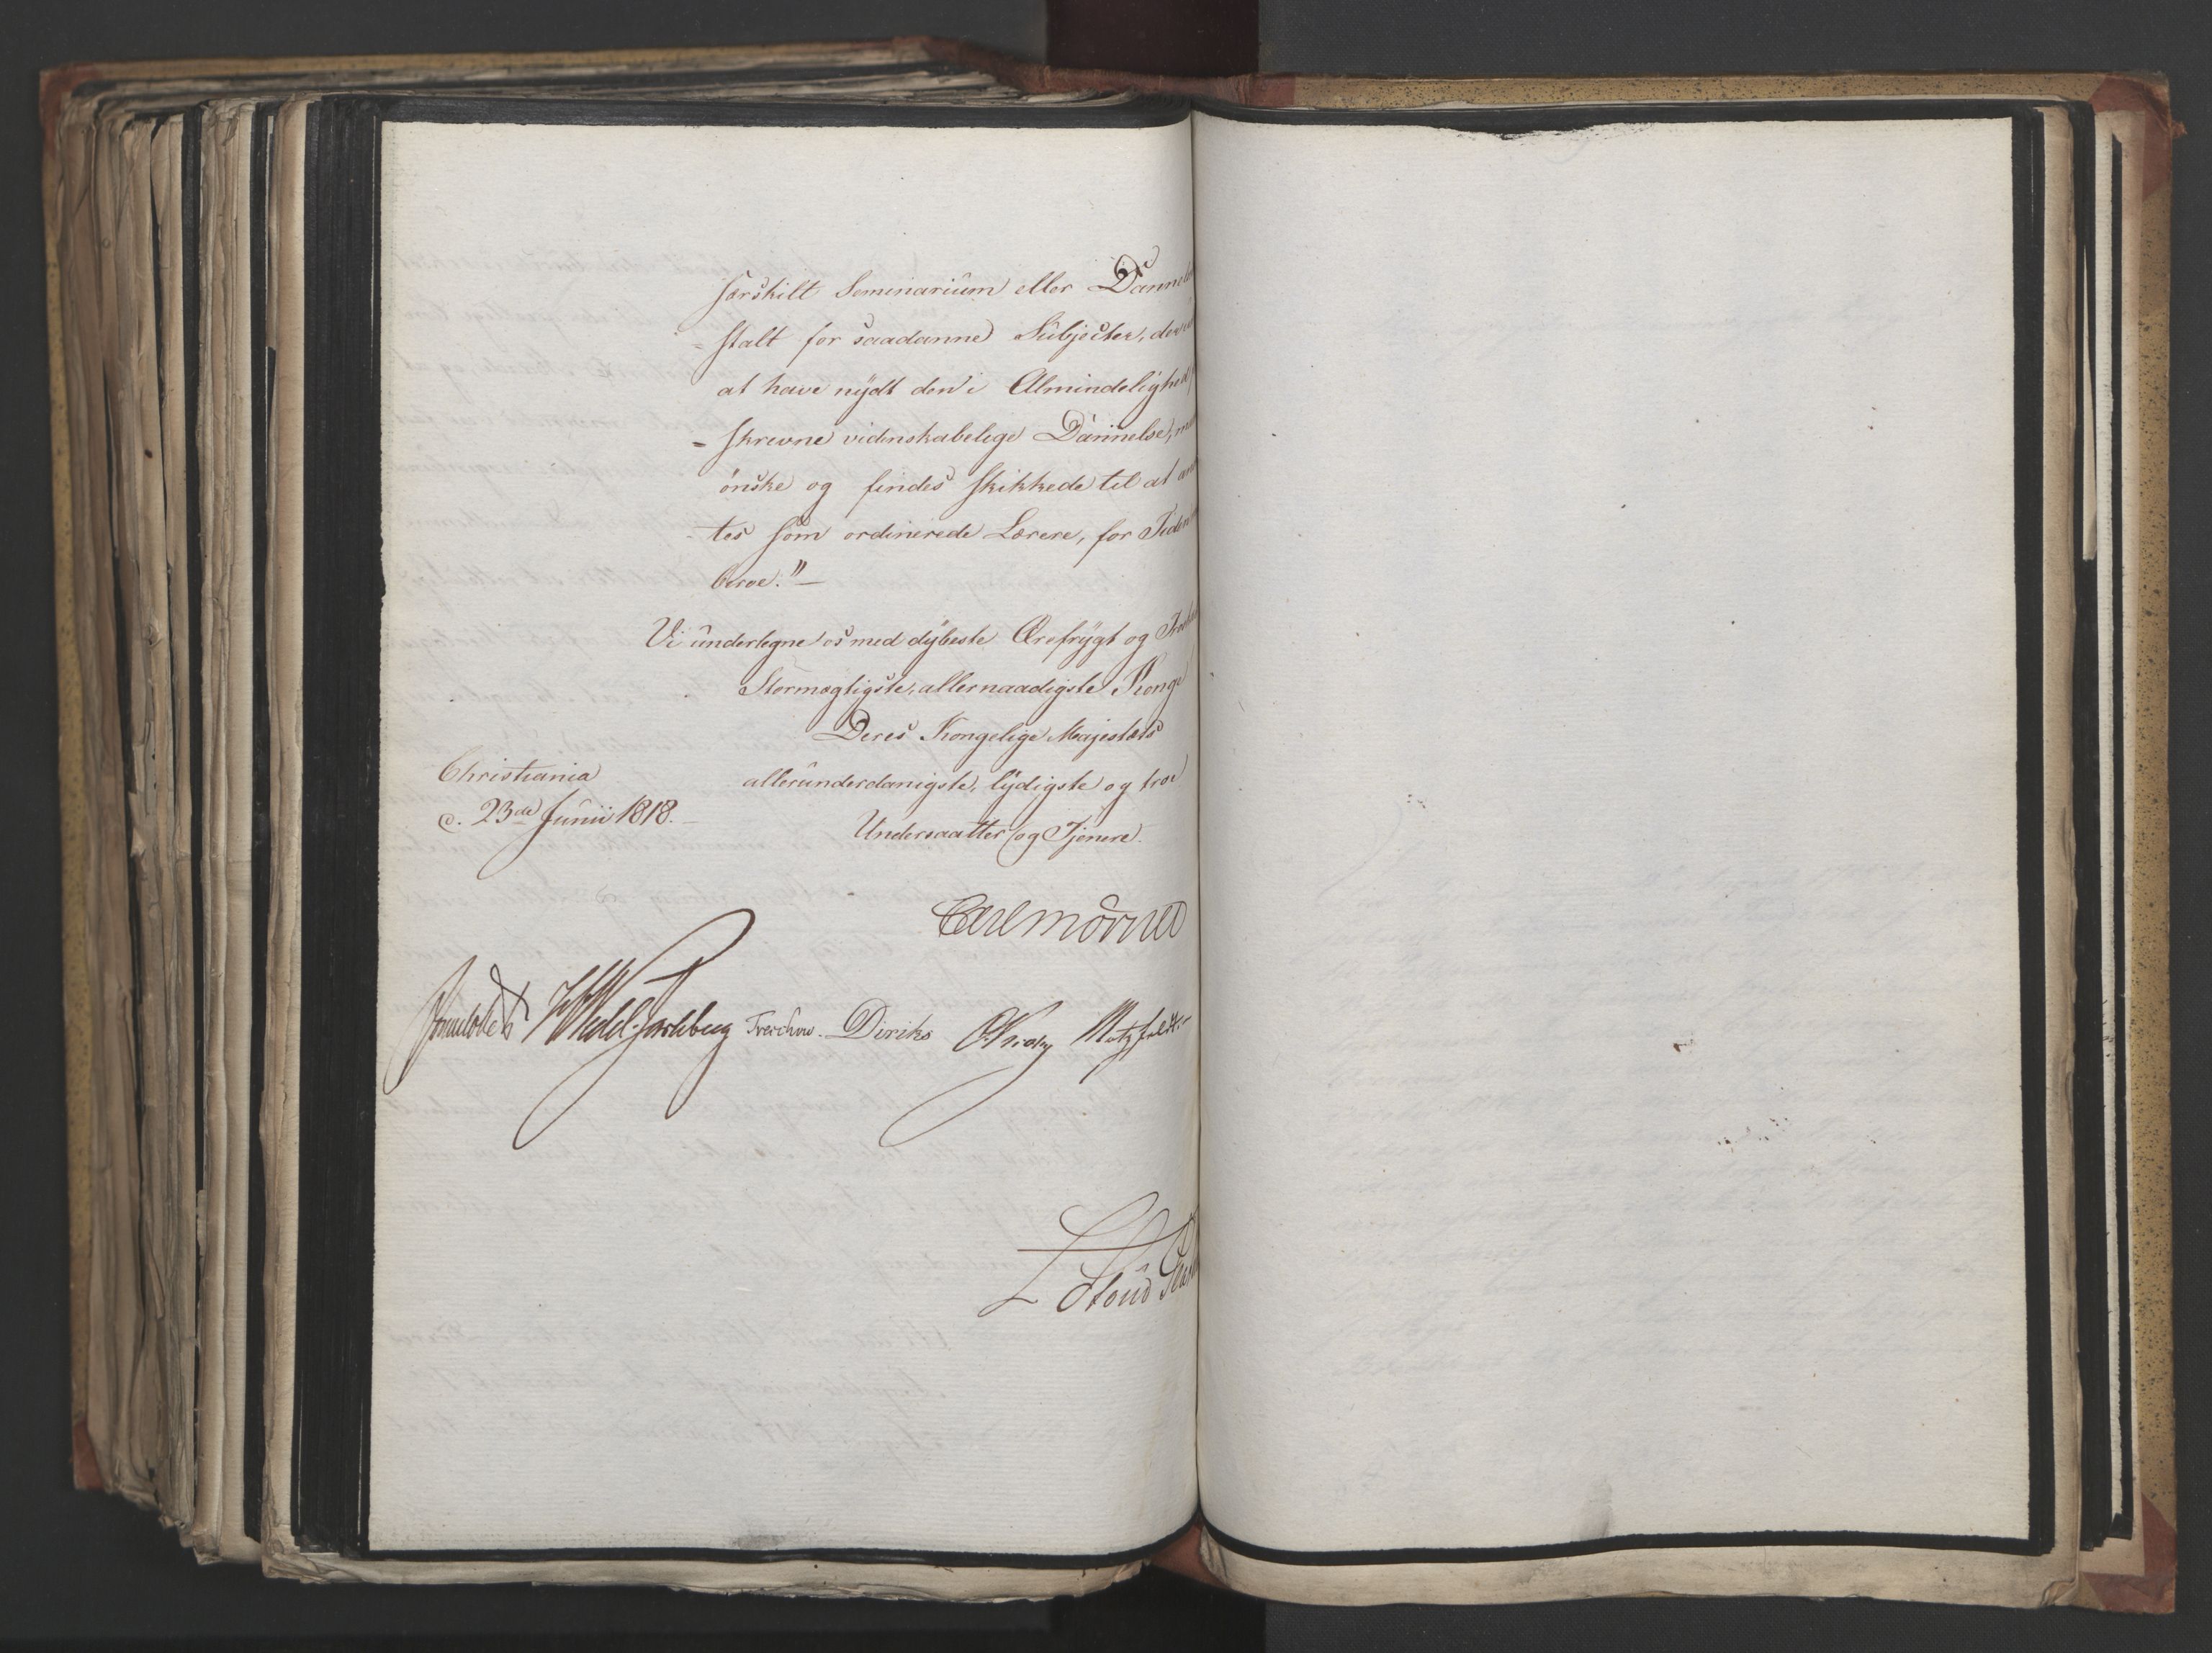 særskilt Seminarium eller Dannel
= stalt for saadanne Subjecter, der
at have nydt den i Almindelighed
= skrevne videnskabelige Dannelse,
ønske og findes skikkede til at an
- tes som ordinerede Lærere, for Tiden
beroe."—
Vi undertegne os med dybeste Ærefrygt og
Stormægtigste, allernaadigste Konge
Deres Kongelige Majestæts
Christiania
d. 23de Junii 1818.
allerunderdanigste, lydigste og troe
Undersaatter og Tjenere.
Carl Mörner
Sommerhielm HWedel-Jarlsberg Treschow. Diriks O.Krag Motzfeldt
L Stoud Plat